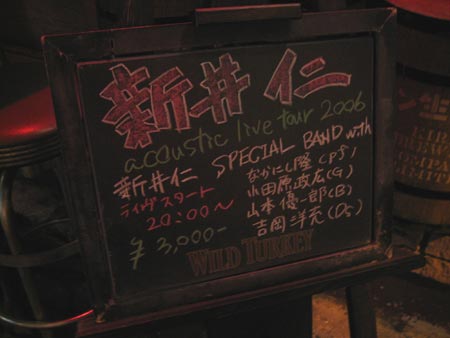 新井 仁
acoustic live tour 2006
新井仁 SPECIAL BAND with
ライヴスタート
20:00〜
¥3,000-
なかにし隆(Pf)
小田原政広(G)
山本優一郎(B)
吉岡洋充(Ds)
WILD TURKEY